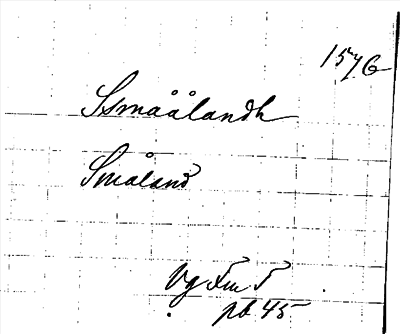 1576
Ssmäälandh
Småland
Vg Fm 5
pl 45